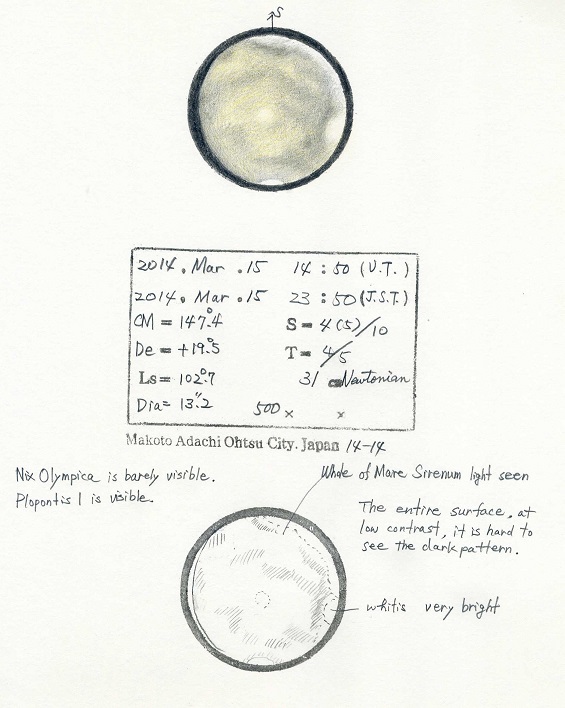 S
2014. Mar. 15 14:50 (U.T.)
2014. Mar. 15 23:50 (J.S.T)
CM = 147°.4 S = 4(5)/10
De = +19°.5 T = 4/5
Ls = 102°.7 31 cm Newtonian
Dia = 13".2 500 × ×
Makoto Adachi Ohtsu City. Japan 14-14
Nix Olympica is barely visible.
Plopontis I is visible.
Whole of Mare Sirenum light seen
The entire surface, at
low contrast, it is hard to
see the dark pattern.
whitis very bright